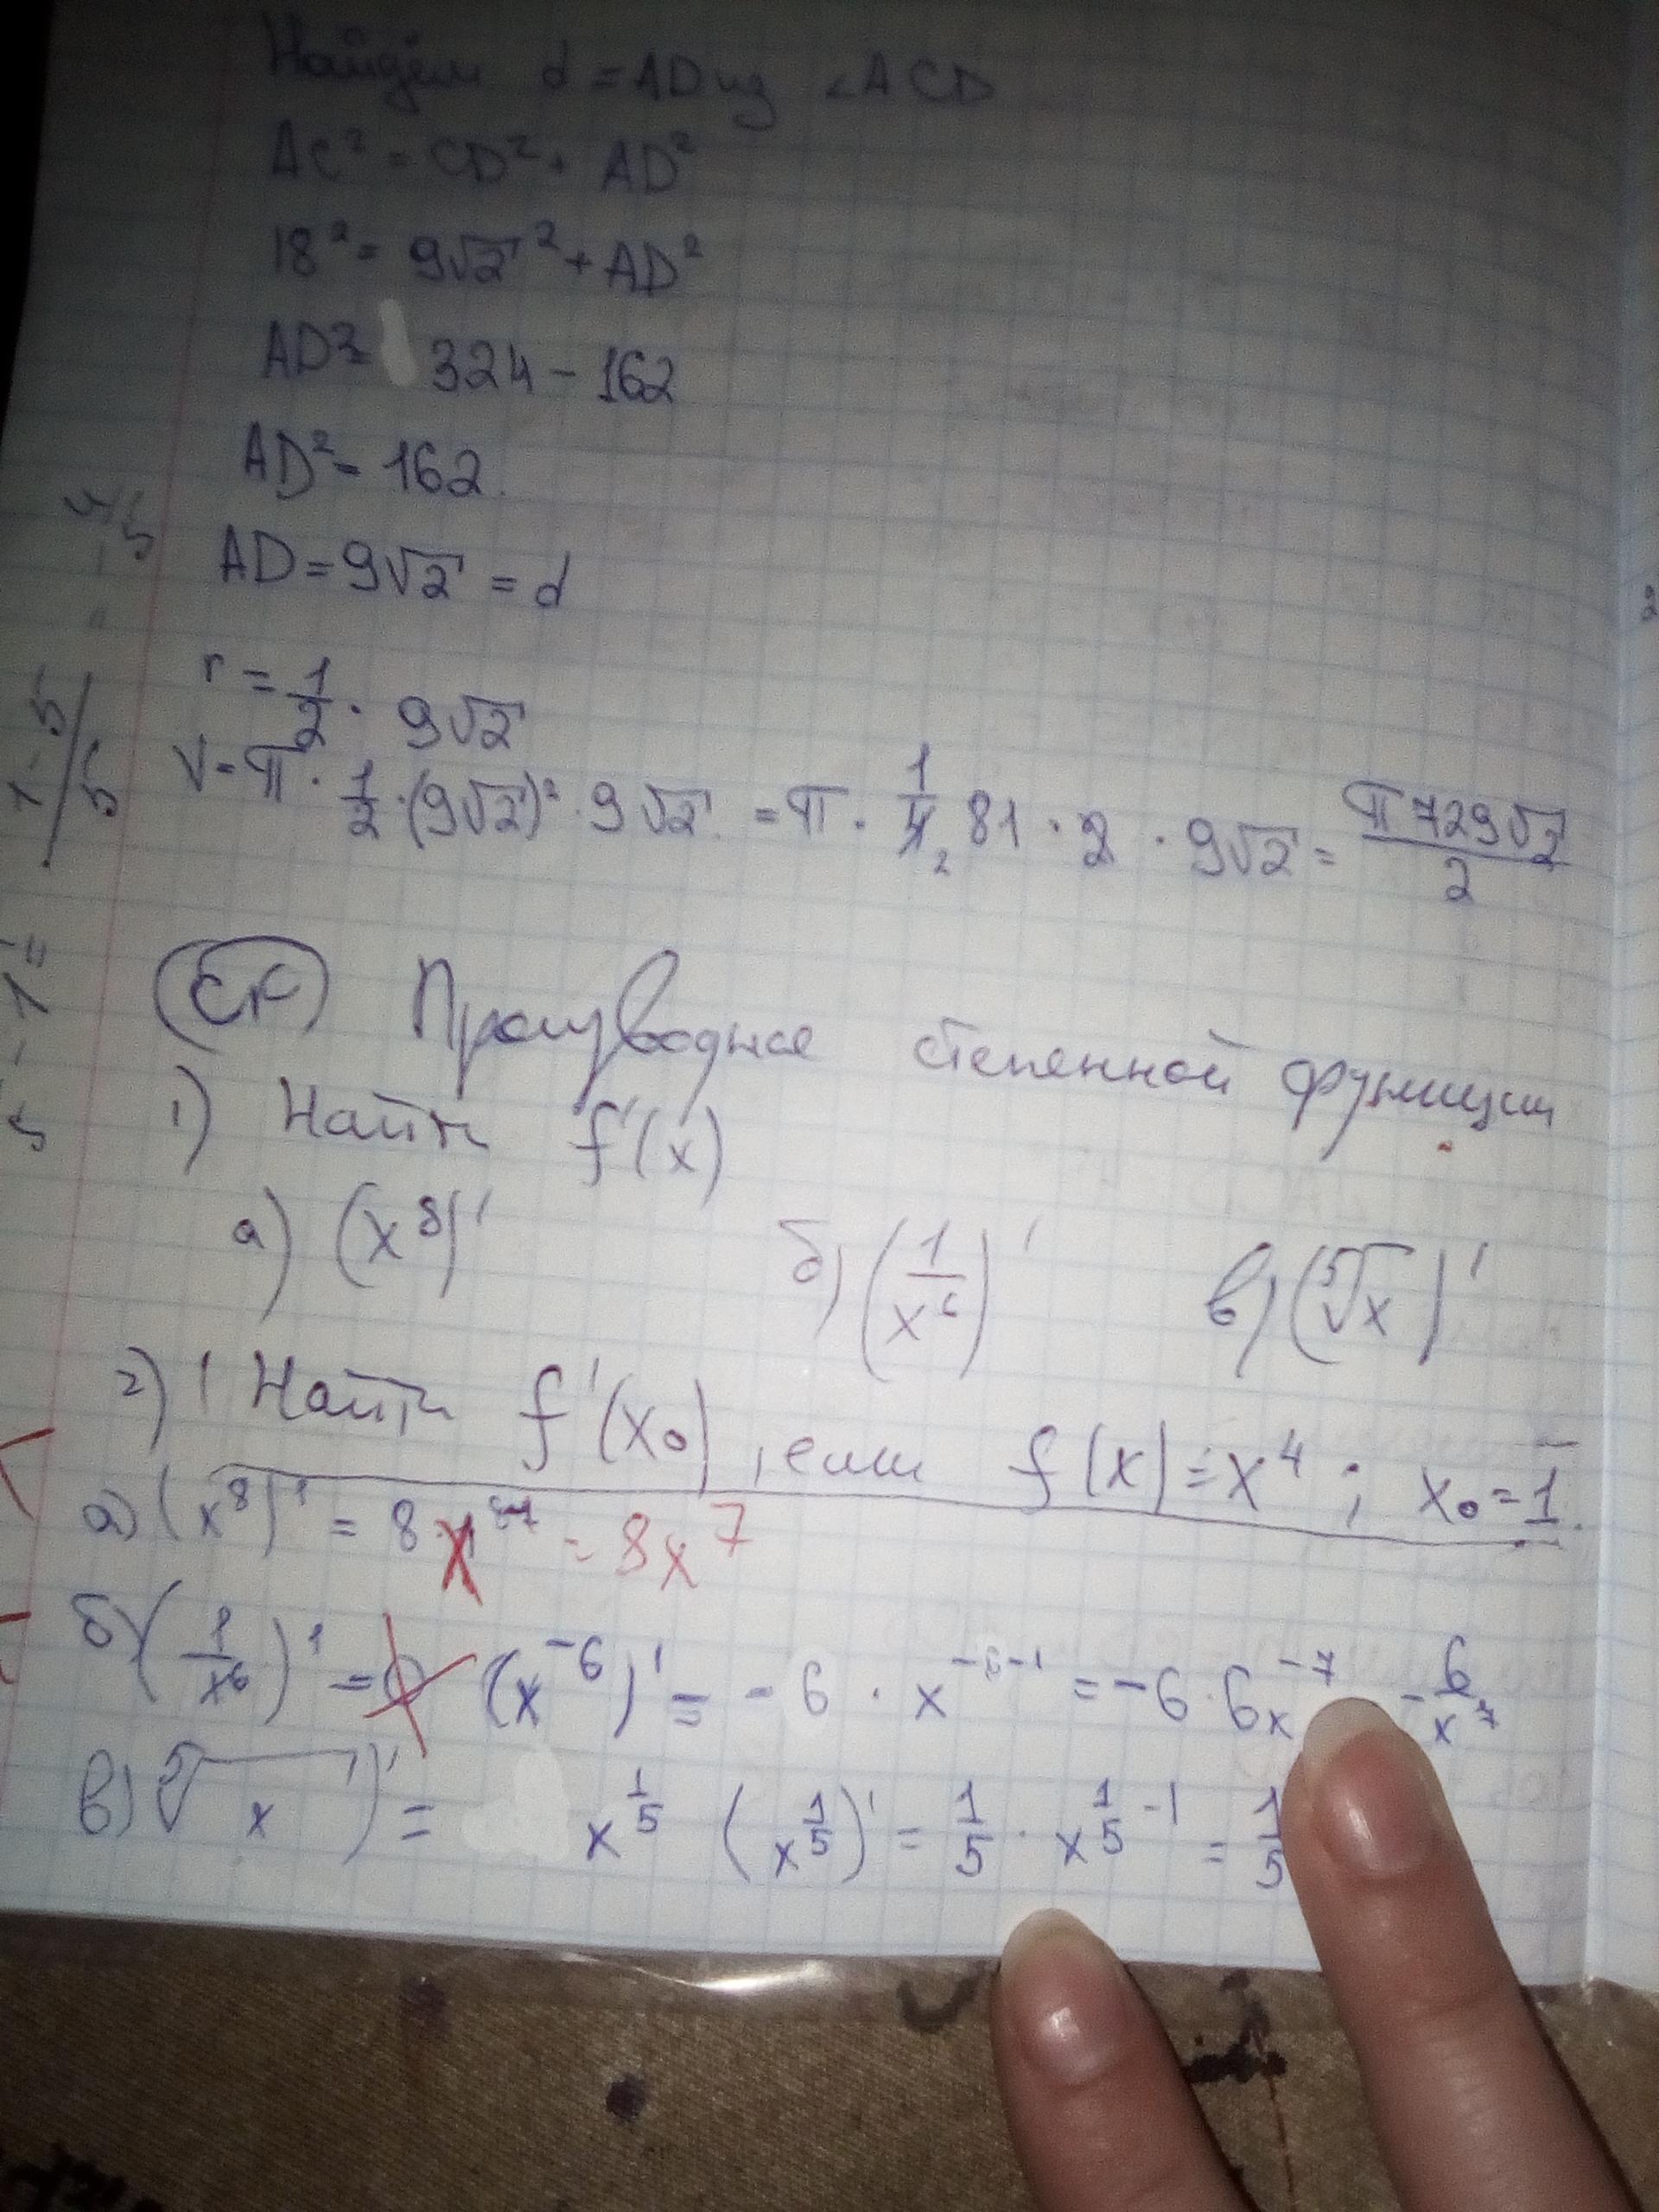 Найдём d = AD из ∠ACD
AC² = CD² + AD²
18² = 9√2² + AD²
AD² = 324 - 162
AD² = 162.
AD = 9√2 = d
r = 1/2 · 9√2
V = π · 1/2 · (9√2)² · 9√2 = π · 1/4 81 · 2 · 9√2 = π729√2/2
СР Производная степенной функции
1) Найти f'(x)
а) (x⁸)' б) (1/x⁶)' в) (⁵√x)'
2) Найти f'(x₀), если f(x) = x⁴; x₀ = 1.
а) (x⁸)' = 8 x⁸⁻⁷ = 8x⁷
б) (1/x⁶)' = (x⁻⁶)' = -6 · x⁻⁶⁻¹ = -6 · 6x⁻⁷ - 6/x⁷
в) ⁵√x)' = x^(1/5) (x^(1/5))' = 1/5 · x^(1/5 - 1) = 1/5